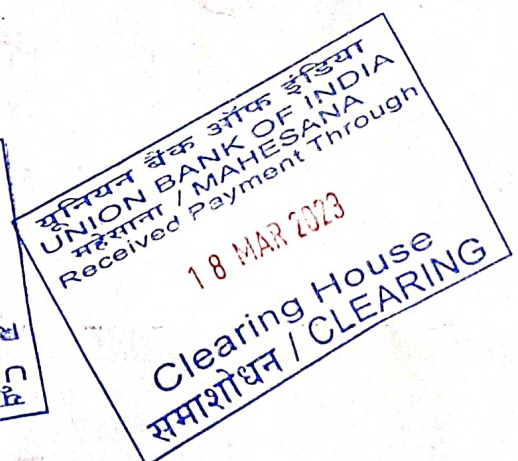 यूनियन बैंक ऑफ इंडिया
UNION BANK OF INDIA
महेसाना / MAHESANA
Received Payment Through
18 MAR 2023
Clearing House
समाशोधन / CLEARING